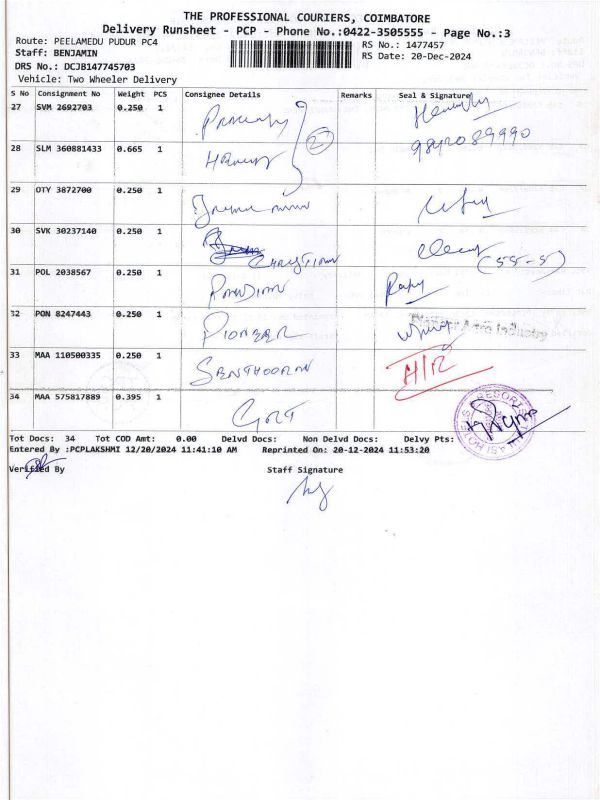 THE PROFESSIONAL COURIERS, COIMBATORE
Delivery Runsheet - PCP - Phone No.:0422-3505555 - Page No.:3
Route: PEELAMEDU PUDUR PC4
RS No.: 1477457
Staff: BENJAMIN
RS Date: 20-Dec-2024
DRS No.: DCJB147745703
Vehicle: Two Wheeler Delivery
S No Consignment No Weight PCS Consignee Details Remarks Seal & Signature
27 SVM 2692703 0.250 1
9842089990
28 SLM 360881433 0.665 1
29 OTY 3872700 0.250 1
30 SVK 30237140 0.250 1 CHRISTIAN (55-5)
31 POL 2038567 0.250 1 PANDIAN
32 PON 8247443 0.250 1 PIONEER Pioneer Agro Industry
33 MAA 110500335 0.250 1 SENTHOORAN H/R
34 MAA 575817889 0.395 1 GRT
Tot Docs: 34 Tot COD Amt: 0.00 Delvd Docs: Non Delvd Docs: Delvy Pts:
Entered By :PCPLAKSHMI 12/20/2024 11:41:10 AM Reprinted On: 20-12-2024 11:53:20
Verified By Staff Signature